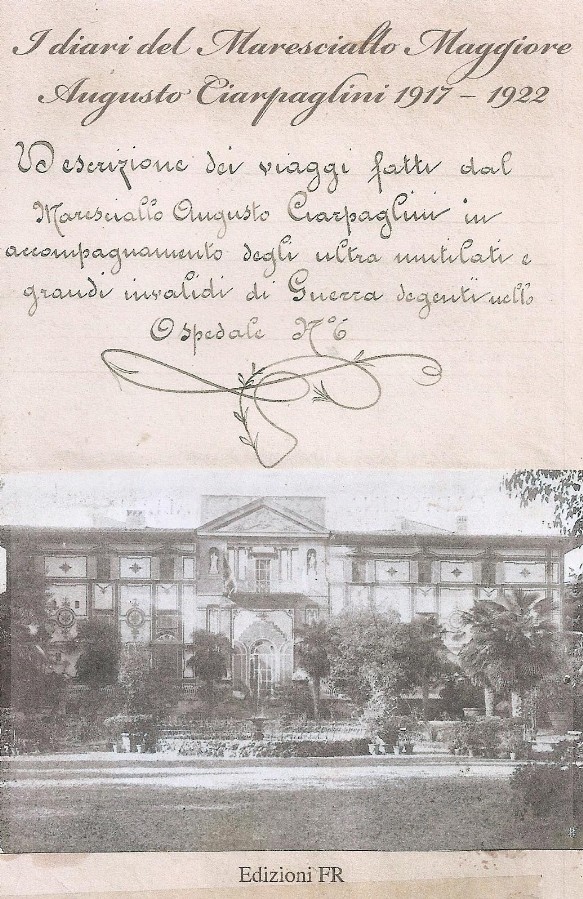 I diari del Maresciallo Maggiore
Augusto Ciarpaglini 1917 – 1922
Descrizione dei viaggi fatti dal
Maresciallo Augusto Ciarpaglini in
accompagnamento degli ultra mutilati e
grandi invalidi di Guerra degenti nello
Ospedale N° 6
Edizioni FR